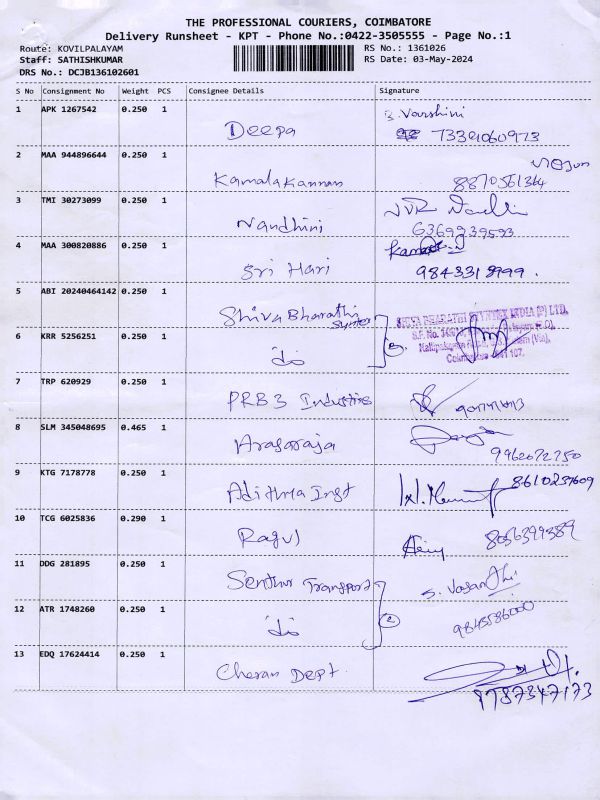 THE PROFESSIONAL COURIERS, COIMBATORE
Delivery Runsheet - KPT - Phone No.:0422-3505555 - Page No.:1
Route: KOVILPALAYAM RS No.: 1361026
Staff: SATHISHKUMAR RS Date: 03-May-2024
DRS No.: DCJB136102601
S No Consignment No Weight PCS Consignee Details Signature
1 APK 1267542 0.250 1 Deepa B. Varshini
2 MAA 944896644 0.250 1 Kamalakannan
8870561364
3 TMI 30273099 0.250 1 Nandhini
6369239593
4 MAA 300820886 0.250 1 Sri Hari
5 ABI 20240464142 0.250 1 Shiva Bharathi
6 KRR 5256251 0.250 1 do
7 TRP 620929 0.250 1 PRB3 Industries
8 SLM 345048695 0.465 1 Arasaraja
9962072750
9 KTG 7178778 0.250 1 Adithya Inst
8610237609
10 TCG 6025836 0.290 1 Ragul
8056399389
11 DDG 281895 0.250 1 Senthur Transport S. Vasanthi
12 ATR 1748260 0.250 1 do
13 EDQ 17624414 0.250 1 Cheran Dept.
9787347173